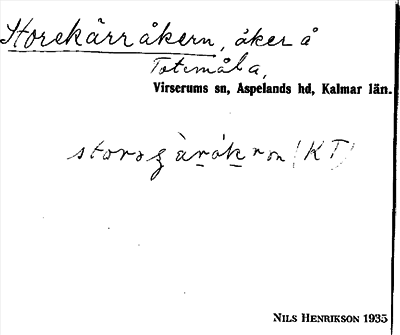 Storekärråkern, åker å
Totemåla,
Virserums sn, Aspelands hd, Kalmar län.
(KT)
NILS HENRIKSON 1935